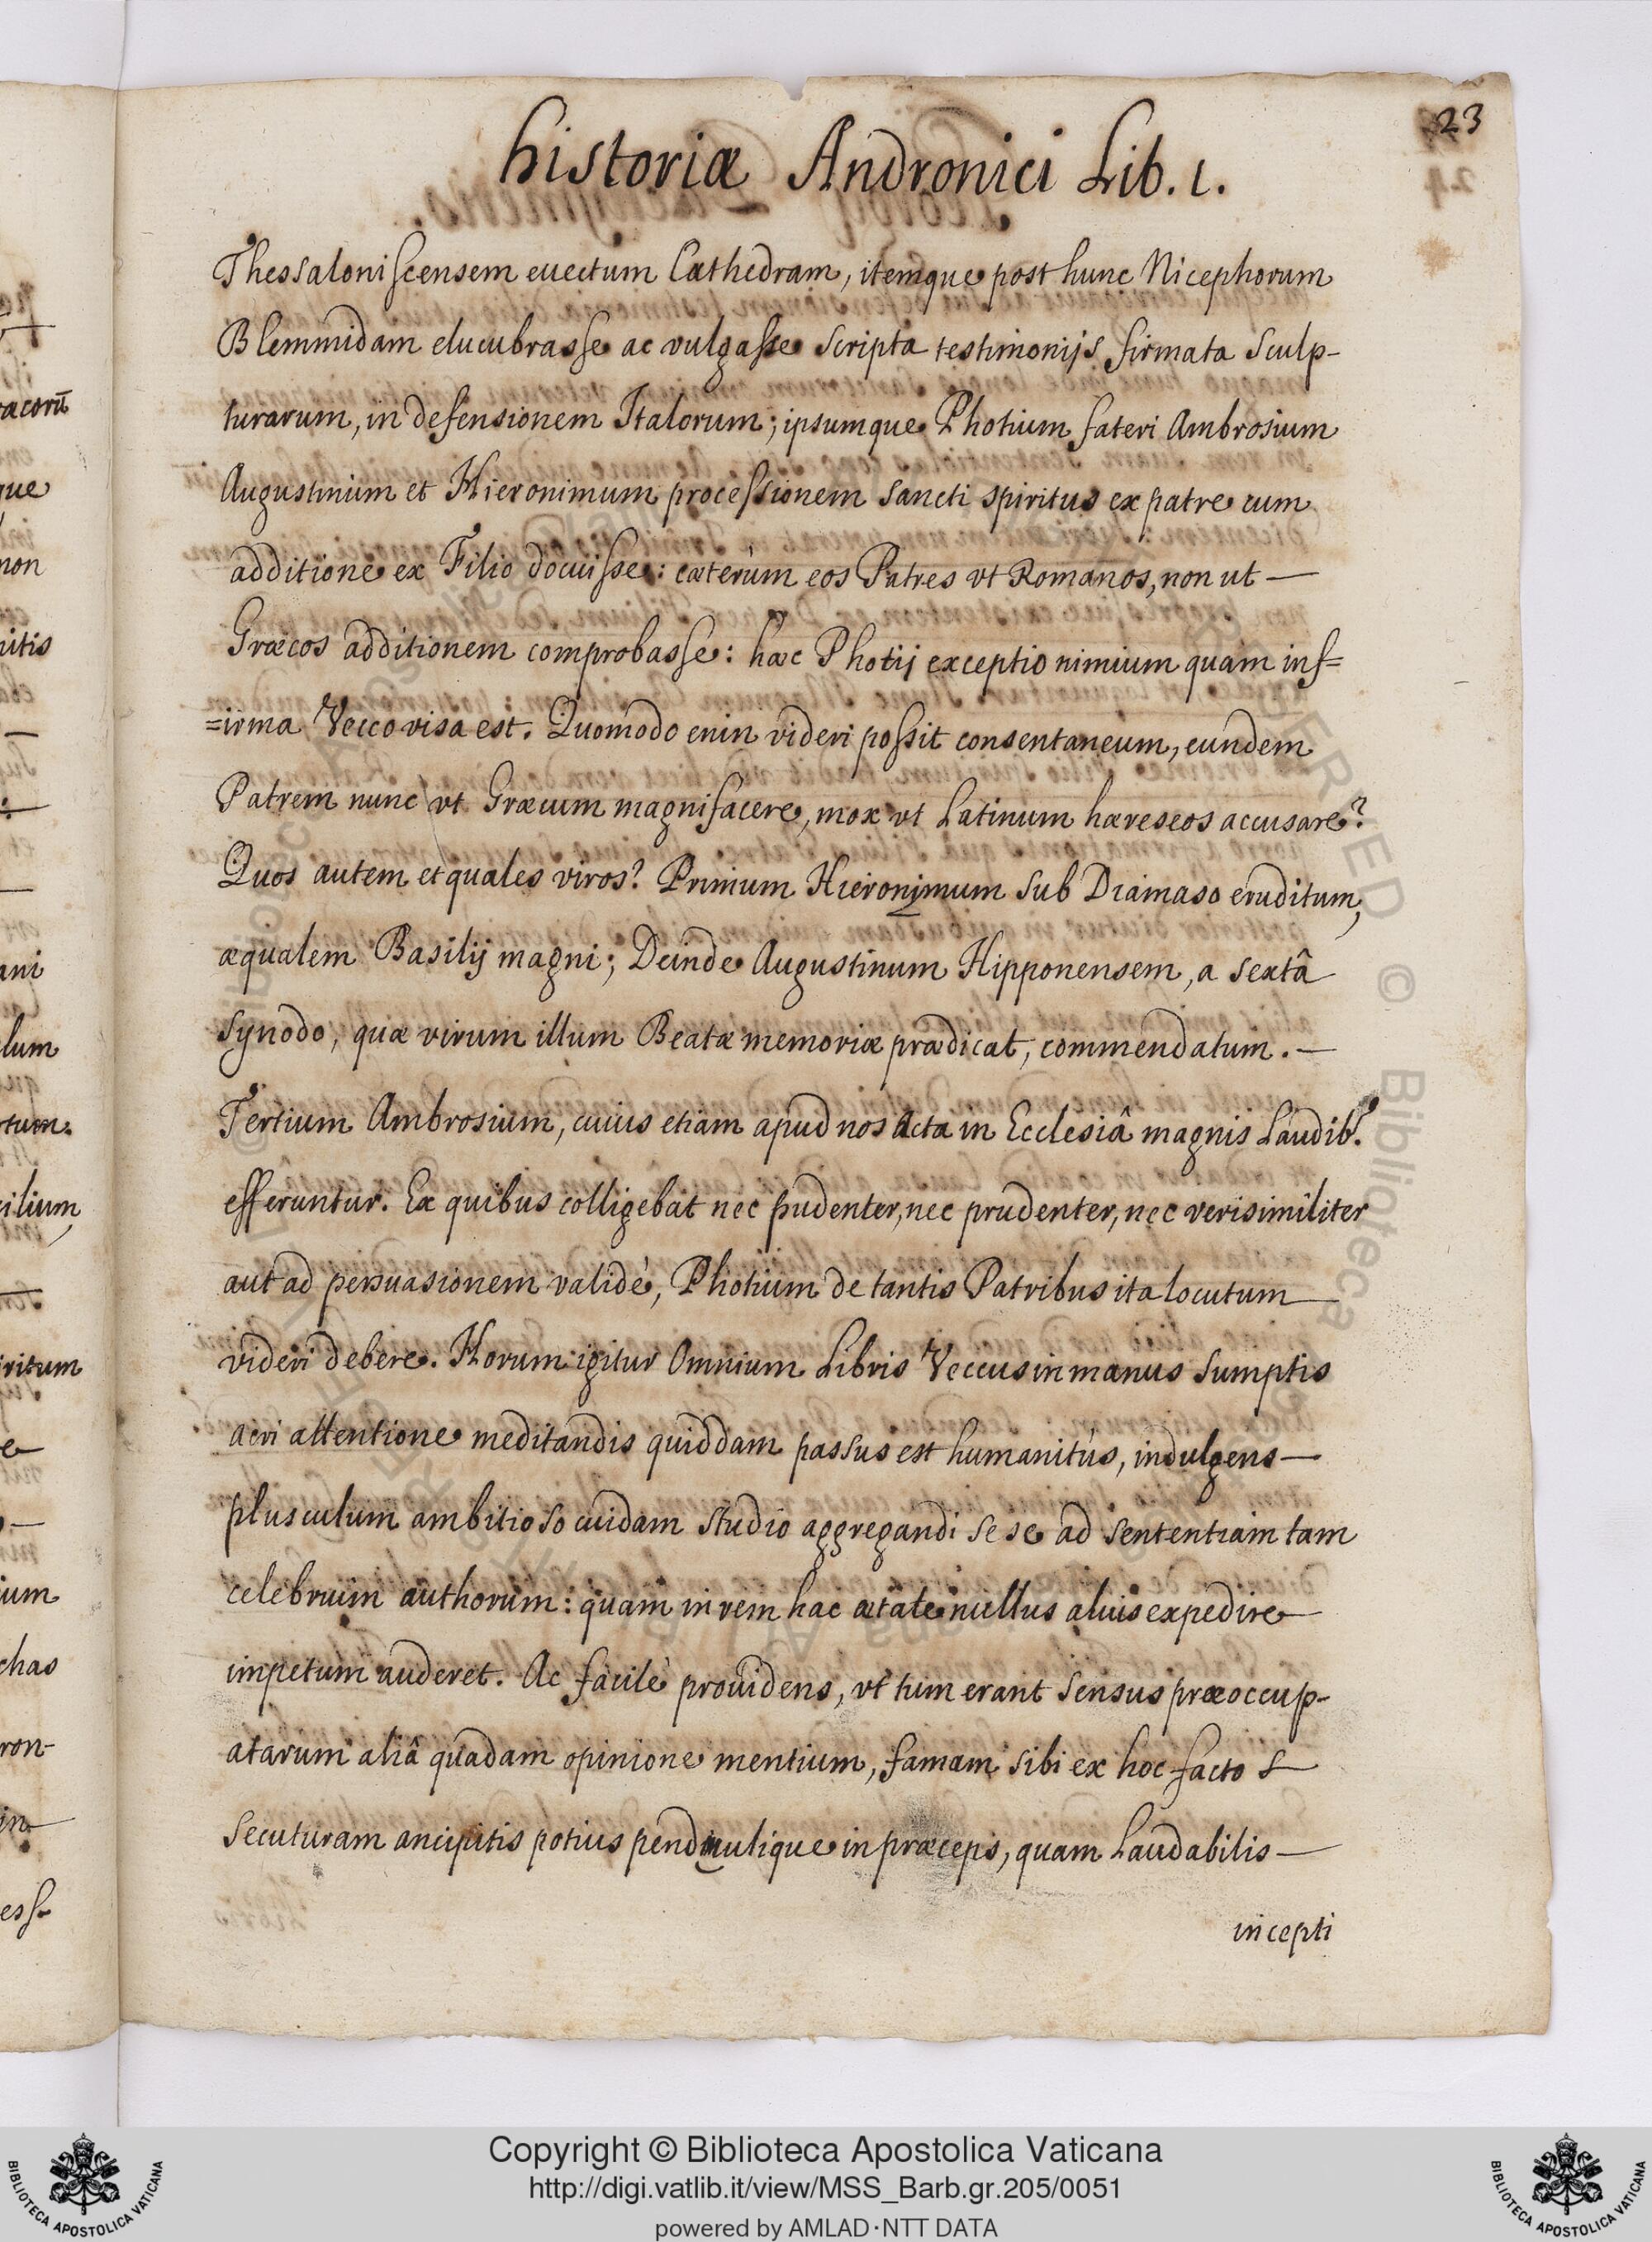 historiæ Andronici Lib. 1.
23
Thessaloniscensem euectum Cathedram, itemque post hunc Nicephorum
Blemmidam elucubrasse ac vulgasse scripta testimonijs firmata sculp-
turarum, in defensionem Italorum; ipsumque Photium fateri Ambrosium
Augustinum et Hieronimum processionem sancti spiritus ex patre cum
additione ex Filio docuisse: cæterùm eos Patres vt Romanos, non ut —
Græcos additionem comprobasse: hæc Photij exceptio nimium quàm inf=
=irma Vecco visa est. Quomodo enin videri possit consentaneum, eundem
Patrem nunc vt Græcum magnifacere, mox vt Latinum hæreseos accusare?
Quos autem et quales viros? Primum Hieronymum sub Damaso eruditum,
æqualem Basilij magni; Deinde Augustinum Hipponensem, a sextâ
synodo, quæ virum illum Beatæ memoriæ prædicat, commendatum. —
Tertium Ambrosium, cuius etiam apud nos Acta in Ecclesiâ magnis Laudib.
efferuntur. Ex quibus colligebat nec pudenter, nec prudenter, nec verisimiliter
aut ad persuasionem validè, Photium de tantis Patribus ita locutum
videri debere. Horum igitur Omnium Libris Veccus in manus sumptis
acri attentione meditandis quiddam passus est humanitùs, indulgens —
plusculum ambitioso cuidam studio aggregandi se se ad sententiam tam
celebrium authorum: quam in rem hac ætate nullus alius expedire
impetum auderet. Ac facilè prouidens, vt tum erant sensus præoccup-
atarum aliâ quadam opinione mentium, famam sibi ex hoc facto
secuturam ancipitis potius pendulique in præceps, quam Laudabilis —
incepti
racorū
que
non
nitis
ani
lum
rtum.
cilium,
iritum
ium
chas
ron-
in
ess-
Copyright © Biblioteca Apostolica Vaticana
http://digi.vatlib.it/view/MSS_Barb.gr.205/0051
powered by AMLAD·NTT DATA
BIBLIOTECA APOSTOLICA VATICANA
BIBLIOTECA APOSTOLICA VATICANA